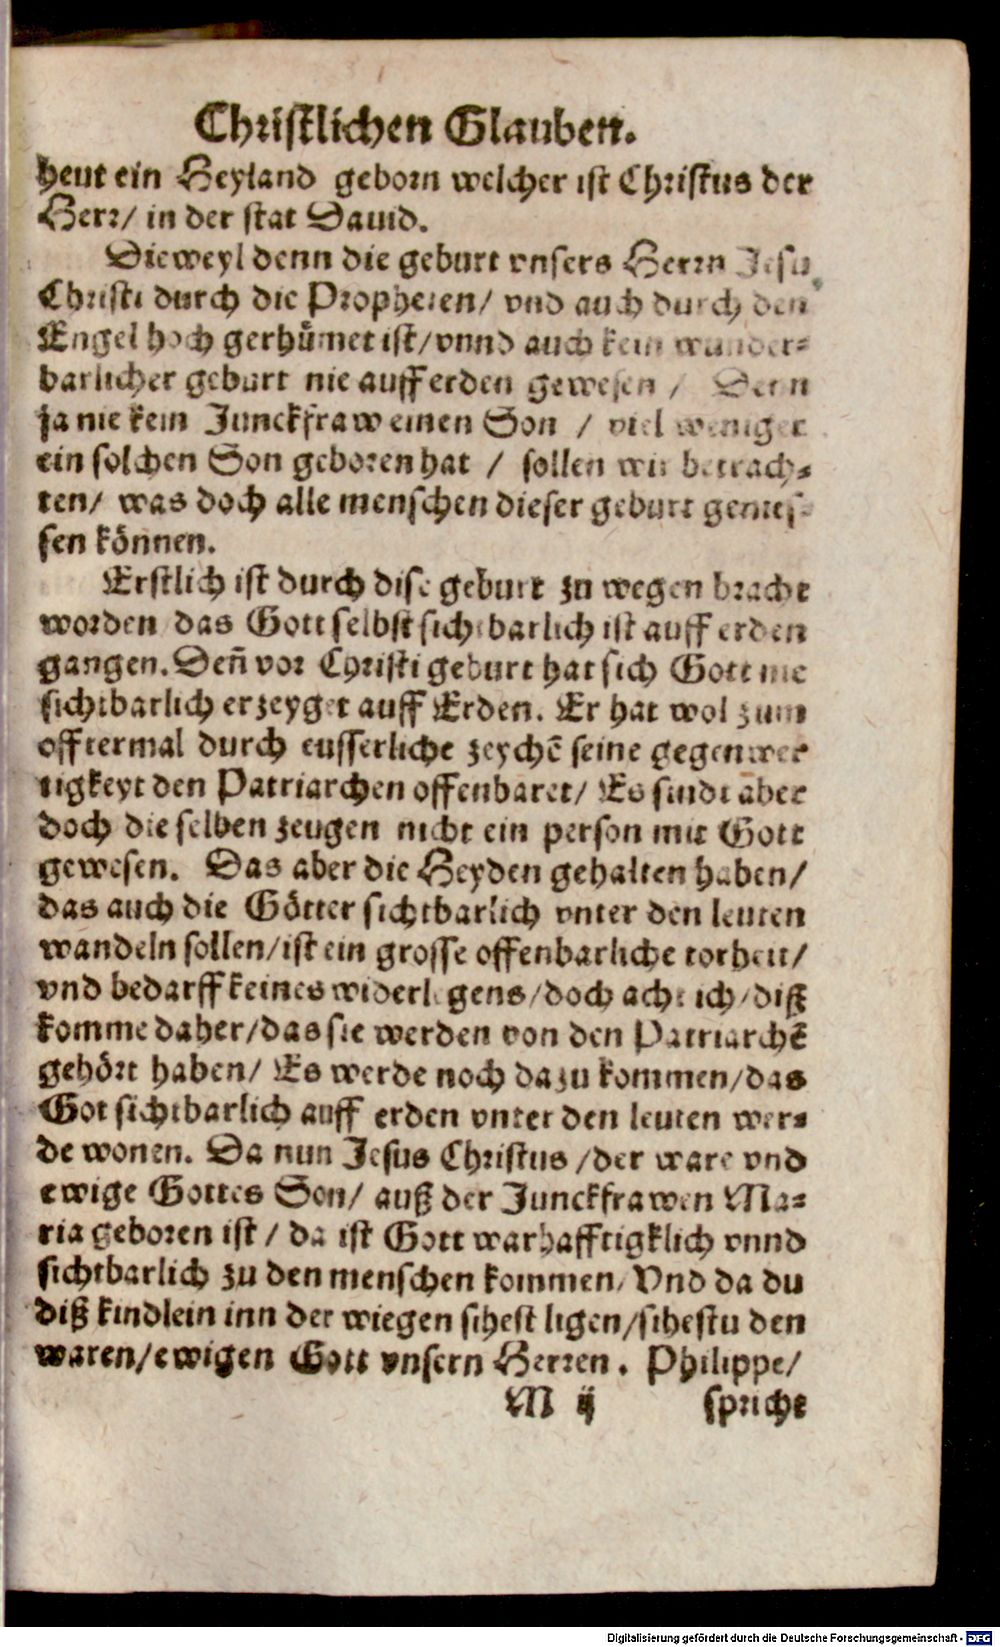 Christlichen Glauben.
heut ein Heyland geborn welcher ist Christus der
Herr/ in der stat Dauid.
Dieweyl denn die geburt vnsers Herrn Jesu
Christi durch die Propheten/ vnd auch durch den
Engel hoch gerhümet ist/vnnd auch kein wunder-
barlicher geburt nie auff erden gewesen / Denn
ja nie kein Junckfraw einen Son / viel weniger
ein solchen Son geboren hat / sollen wir betrach-
ten/ was doch alle menschen dieser geburt genies-
sen können.
Erstlich ist durch dise geburt zu wegen bracht
worden das Gott selbst sichtbarlich ist auff erden
gangen. Deñ vor Christi geburt hat sich Gott nie
sichtbarlich erzeyget auff Erden. Er hat wol zum
offtermal durch eusserliche zeychē seine gegenwer
tigkeyt den Patriarchen offenbaret/ Es sindt aber
doch die selben zeugen nicht ein person mit Gott
gewesen. Das aber die Heyden gehalten haben/
das auch die Götter sichtbarlich vnter den leuten
wandeln sollen/ist ein grosse offenbarliche torheit/
vnd bedarff keines widerlegens/doch acht ich/diß
komme daher/das sie werden von den Patriarchē
gehört haben/ Es werde noch dazu kommen/das
Got sichtbarlich auff erden vnter den leuten wer-
de wonen. Da nun Jesus Christus /der ware vnd
ewige Gottes Son/ auß der Junckfrawen Ma-
ria geboren ist / da ist Gott warhafftigklich vnnd
sichtbarlich zu den menschen kommen/ Vnd da du
diß kindlein inn der wiegen sihest ligen/sihestu den
waren/ewigen Gott vnsern Herren. Philippe/
M ij spricht
Digitalisierung gefördert durch die Deutsche Forschungsgemeinschaft - DFG